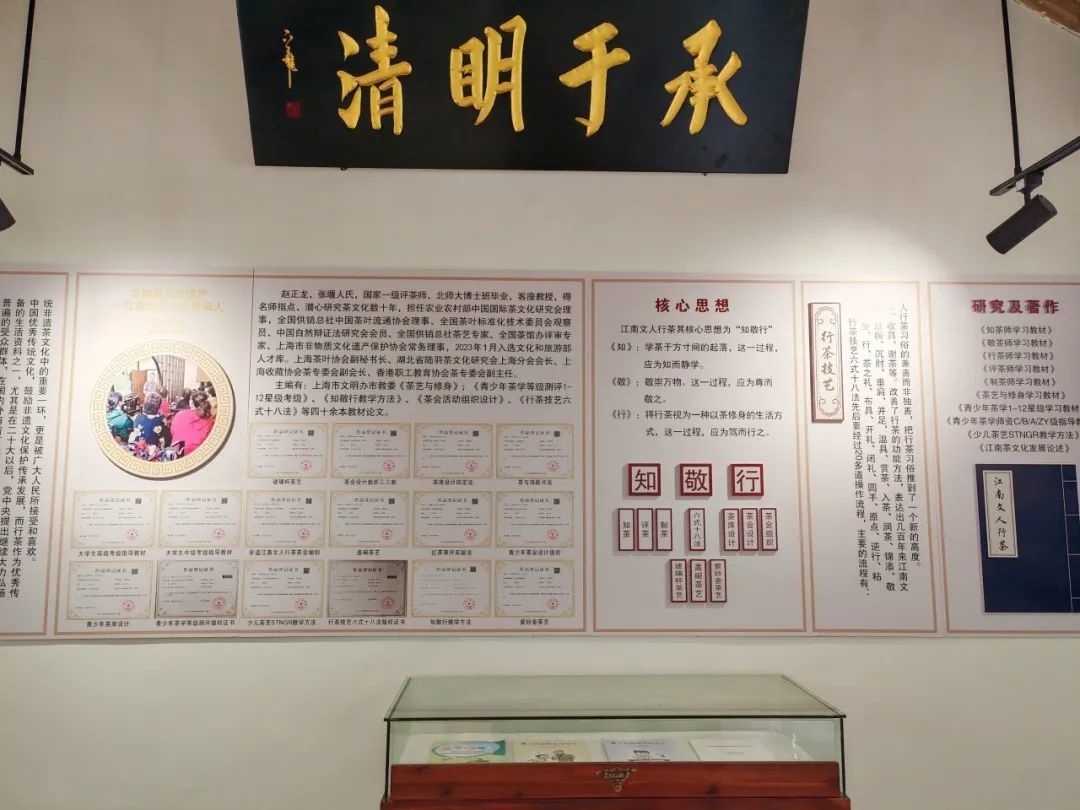 承于明清
统非遗茶文化中的重要一环，更是被广大人民所接受和喜欢。
中国优秀传统文化，鼓励非遗文化保护传承发展，而行茶作为优秀传
备的生活资料之一，尤其是在二十大以后，党中央提出继续大力弘扬
赵正龙，张堰人氏，国家一级评茶师、北师大博士班毕业，客座教授，得
名师指点，潜心研究茶文化数十年，担任农业农村部中国国际茶文化研究会理
事，全国供销总社中国茶叶流通协会理事、全国茶叶标准化技术委员会观察
员、中国自然辩证法研究会会员、全国供销总社茶艺专家、全国茶馆办评审专
家、上海市非物质文化遗产保护协会常务理事，2023年1月入选文化和旅游部
人才库。上海茶叶协会副秘书长、湖北省陆羽茶文化研究会上海分会会长、上
海收藏协会茶专委会副会长、香港职工教育协会茶专委会副主任。
主编有：上海市文明办市教委《茶艺与修身》；《青少年茶学等级测评1-
12星级考级》、《知敬行教学方法》、《茶会活动组织设计》、《行茶技艺六
式十八法》等四十余本教材论文。
玻璃杯茶艺
茶席设计四定法
茶与诗歌书法
大学生高级考级指导教材
大学生中级考级指导教材
非遗江南文人行茶茶会编制
盖碗茶艺
红茶审评实验法
青少年茶会设计组织
青少年茶席设计
青少年茶学等级测评版权证书
少儿茶艺STNGR教学方法
行茶技艺六式十八法版权证书
知敬行教学方法
紫砂壶茶艺
核心思想
江南文人行茶其核心思想为“知敬行”
《知》：学茶于方寸间的起落，这一过程，
应为知而静学。
《敬》：敬崇万物。这一过程，应为尊而
敬之。
《行》：将行茶视为一种以茶修身的生活方
式，这一过程，应为笃而行之。
知 敬 行
知茶 评茶 制茶 六式十八法 茶席设计 茶会设计 茶会组织
玻璃杯茶艺 盖碗茶艺 紫砂壶茶艺
行茶技艺
人行茶习俗的兼善而非独善，把行茶习俗推到了一个新的高度。
收具、谢茶等。改善了行茶的功能方法，表达出几百年来江南文
总腕、沉肘、垂肩、并足，温具、赏茶、入茶、润茶、锦添、敬
坐、行、茶之礼、布具、开礼、闭礼、圆手、原点、逆行、粘
行茶技艺六式十八法先后要经过20多道操作流程，主要的流程有：
研究及著作
《知茶师学习教材》
《敬茶师学习教材》
《行茶师学习教材》
《评茶师学习教材》
《制茶师学习教材》
《茶艺与修身学习教材》
《青少年茶学1-12星级学习教材
《青少年茶学师资C/B/A/ZY级指导教
《少儿茶艺STNGR教学方法》
《江南茶文化发展论述》
江南文人行茶